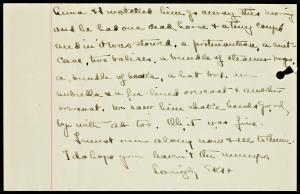 Anna & I watched him go away this morning
and he had one dead horse & a tiny coupé
and in it was stowed, a portmanteau, a suit
case, two valises, a bundle of steamer rugs
a bundle of books, a hat box, an
umbrella & a fur lined overcoat & another
overcoat. We saw him shake hands good
bye with all too. Oh, it was fine.
I must run along now & see to things.
I do hope you haven't the mumps.
Lovingly